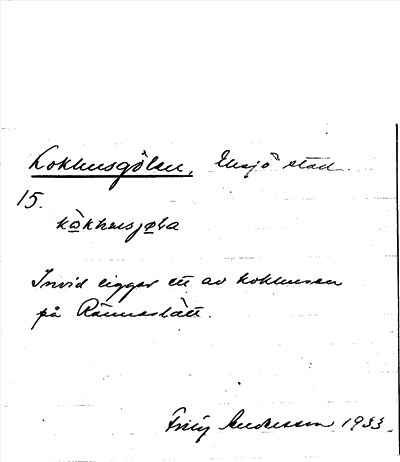 Kokhusgölen, Eksjö stad
15.
kòkhusjøla
Invid ligger ett av kokhusen
på Ränneslätt.
Fritz Andersson 1933.